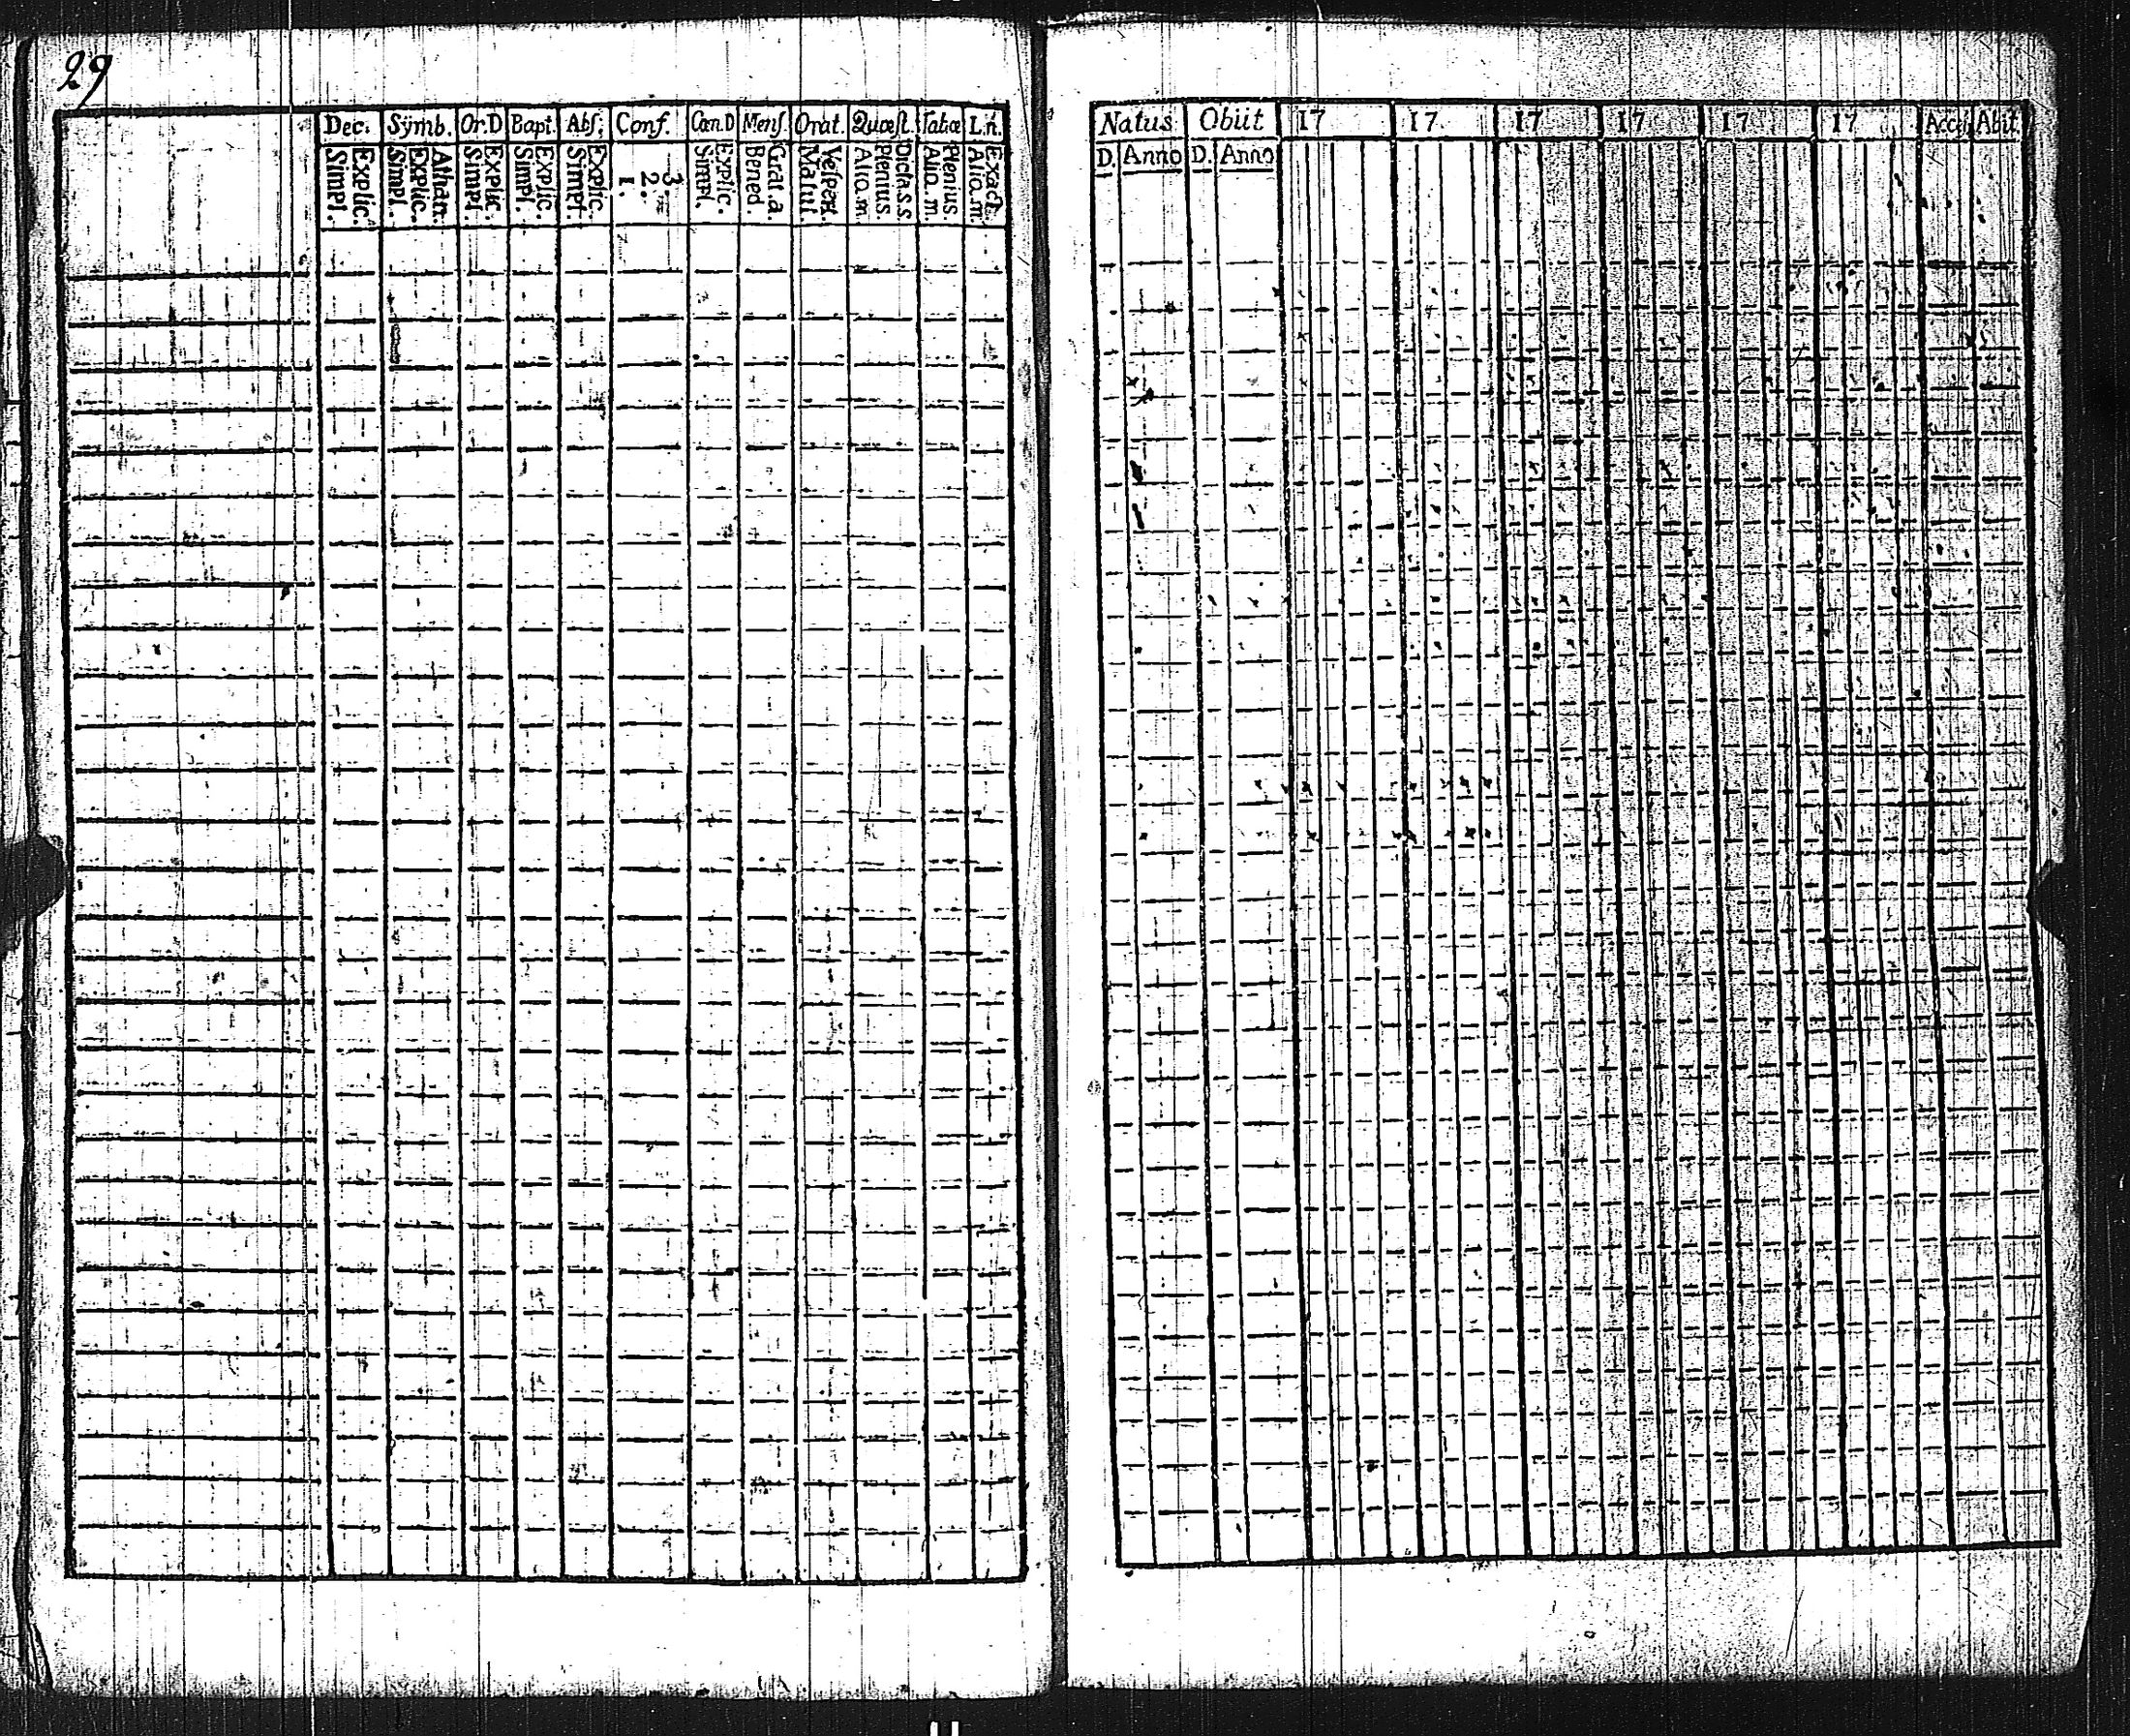 29
Dec. Sÿmb. Or.D Bapt. Abſ. Conf. Cœn.D Menſ. Orat. Quæſt. Tabœ L.n.
Explic. Simpl.
Athan. Explic. Simpl.
Explic. Simpl.
Explic. Simpl.
Explic. Simpl.
3 2. 1.
Explic. Simpl.
Grat.a. Bened.
Veſpert. Matut.
Dicta.s.s. Plenius. Aliq.m.
Plenius. Aliq.m.
Exact. Aliq.m.
Natus Obiit 17 17 17 17 17 17 Acceſ. Abiit
D. Anno D. Anno